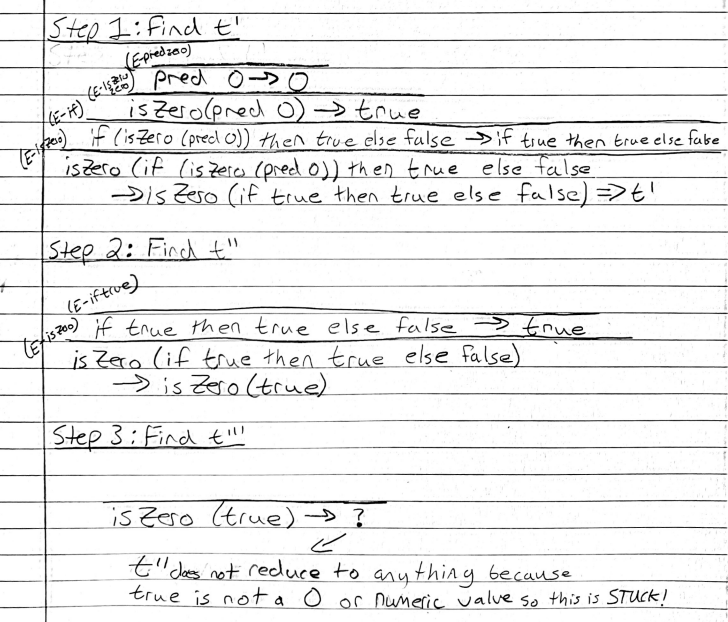 Step 1: Find t'
(E-predzero)
(E-iszero zero) pred 0 → 0
(E-if) iszero(pred 0) → true
(E-iszero) if (iszero (pred 0)) then true else false → if true then true else false
iszero (if (iszero (pred 0)) then true else false
→ iszero (if true then true else false) ⇒ t'
Step 2: Find t''
(E-iftrue)
(E-iszero) if true then true else false → true
iszero (if true then true else false)
→ iszero (true)
Step 3: Find t'''
iszero (true) → ?
t'' does not reduce to anything because
true is not a 0 or numeric value so this is STUCK!